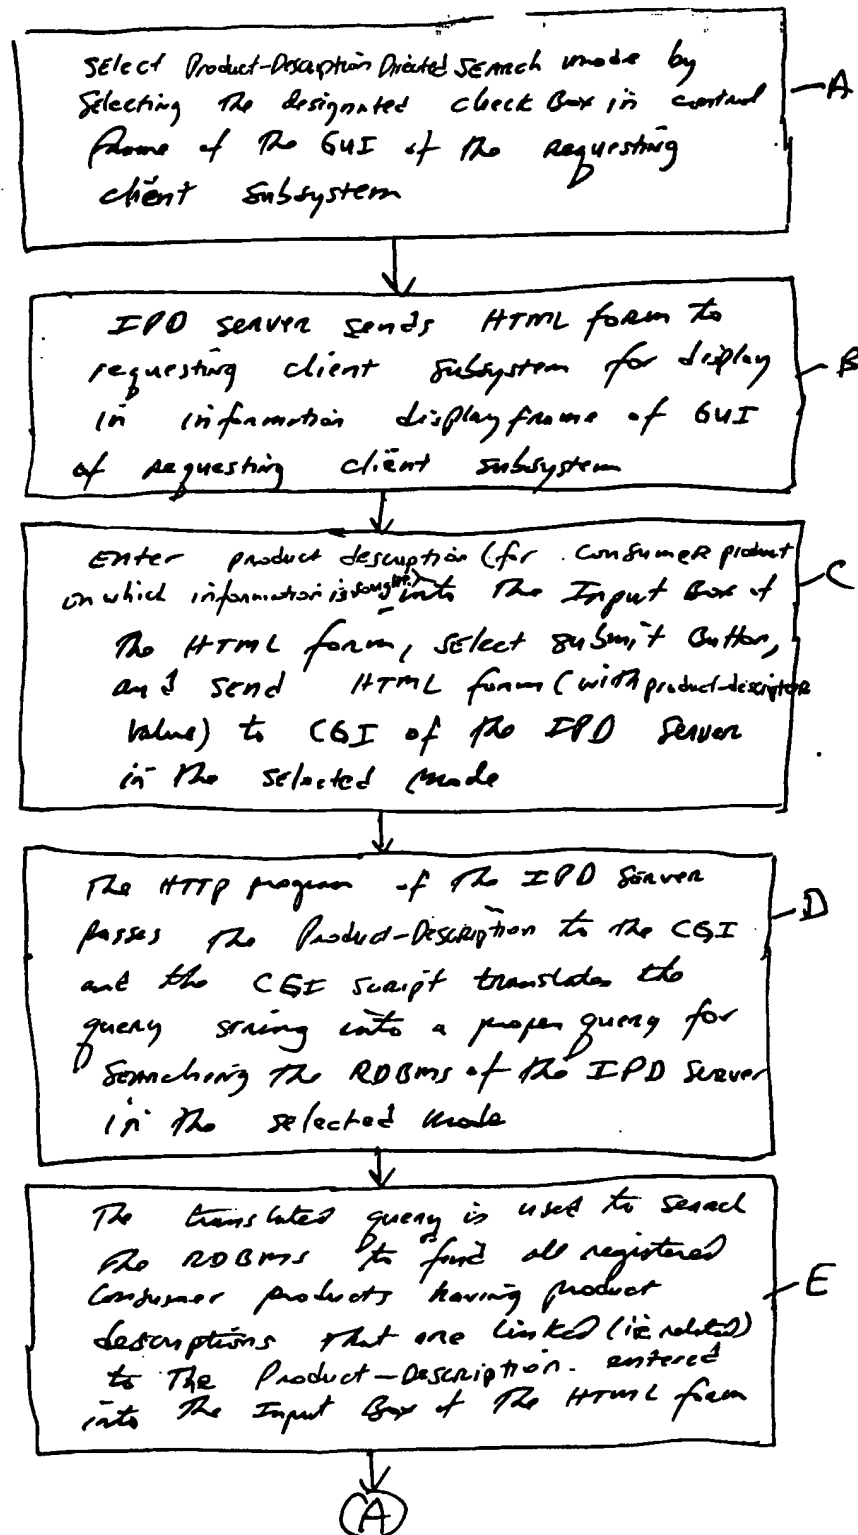 Select Product-Description Directed Search mode by
selecting the designated check Box in control
frame of the GUI of the requesting
client subsystem
A
IPD server sends HTML form to
requesting client subsystem for display
in information display frame of GUI
of requesting client subsystem
B
Enter product description (for consumer product
on which information is sought) into the Input Box of
the HTML form, select submit Button,
and send HTML form (with product-descriptor
value) to CGI of the IPD Server
in the selected mode
C
The HTTP program of the IPD Server
passes the Product-Description to the CGI
and the CGI script translates the
query string into a proper query for
searching the RDBMS of the IPD Server
in the selected mode
D
The translated query is used to search
the RDBMS to find all registered
consumer products having product
descriptions that are linked (ie related)
to The Product-Description entered
into The Input Box of The HTML form
E
A